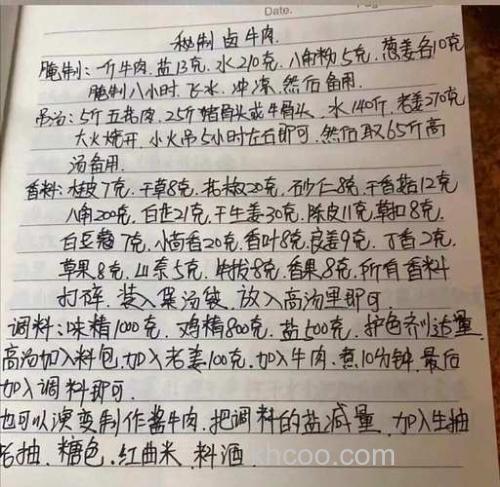 Date.
秘制卤牛肉
腌制：一斤牛肉.盐13克.水210克.八角粉5克.葱姜各10克
腌制八小时.飞水.冲凉.然后备用.
吊汤：5斤五花肉.25斤猪骨头或牛骨头、水140斤.老姜270克
大火烧开.小火吊5小时左右即可.然后取65斤高
汤备用.
香料：桂皮7克.干草8克.花椒20克.砂仁8克.干香菇12克
八角200克.白芷21克.干生姜30克.陈皮11克.草扣8克.
白豆蔻7克.小茴香20克.香叶8克.良姜9克.丁香2克.
草果8克.山奈5克.毕拔8克.香果8克.所有香料
打碎.装入煲汤袋.放入高汤里即可.
调料：味精1000克.鸡精800克.盐500克.护色剂适量
高汤加入料包.加入老姜100克.加入牛肉.煮10分钟.最后
加入调料即可.
也可以演变制作酱牛肉.把调料的盐减量.加入生抽
老抽.糖色.红曲米.料酒.
khcoo.com